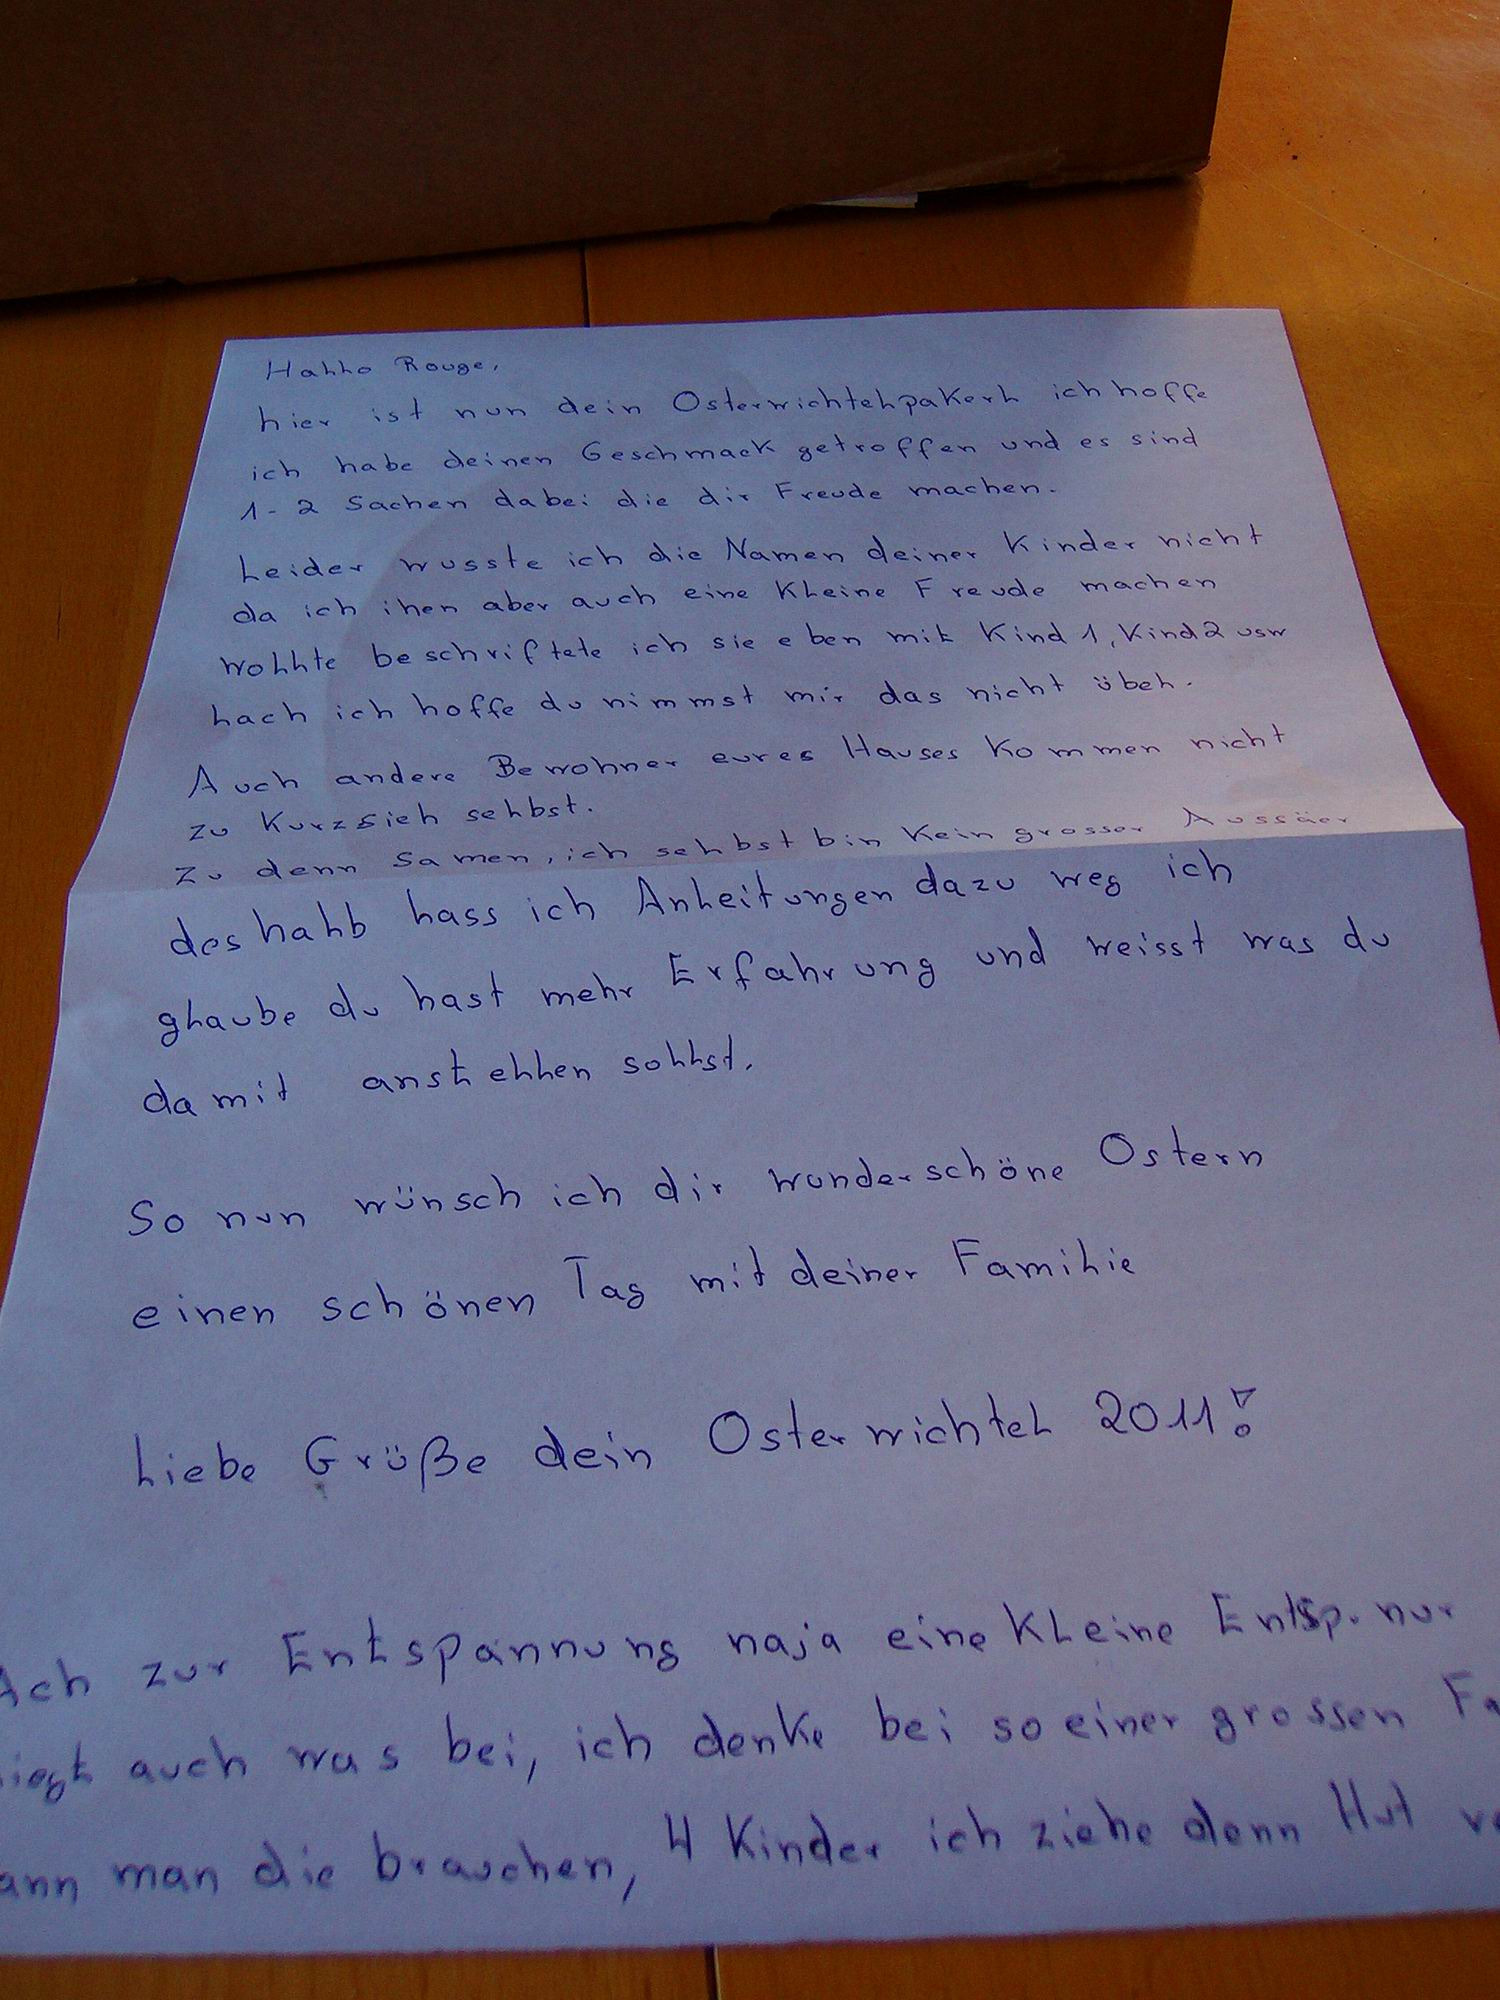 Hallo Rouge,
hier ist nun dein Osterwichtelpaketl ich hoffe
ich habe deinen Geschmack getroffen und es sind
1-2 Sachen dabei die dir Freude machen.
Leider wusste ich die Namen deiner Kinder nicht
da ich ihen aber auch eine kleine Freude machen
wollte beschriftete ich sie eben mit Kind 1, Kind 2 usw
lach ich hoffe du nimmst mir das nicht übel.
Auch andere Bewohner eures Hauses kommen nicht
zu kurz sieh selbst.
Zu denn Samen, ich selbst bin kein grosser Aussäer
deshalb lass ich Anleitungen dazu weg ich
glaube du hast mehr Erfahrung und weisst was du
damit anstellen sollst.
So nun wünsch ich dir wunderschöne Ostern
einen schönen Tag mit deiner Familie
Liebe Grüße dein Osterwichtel 2011!
Ach zur Entspannung naja eine kleine Entsp. nur
liegt auch was bei, ich denke bei so einer grossen Fa
ann man die brauchen, 4 Kinder ich ziehe denn Hut vo